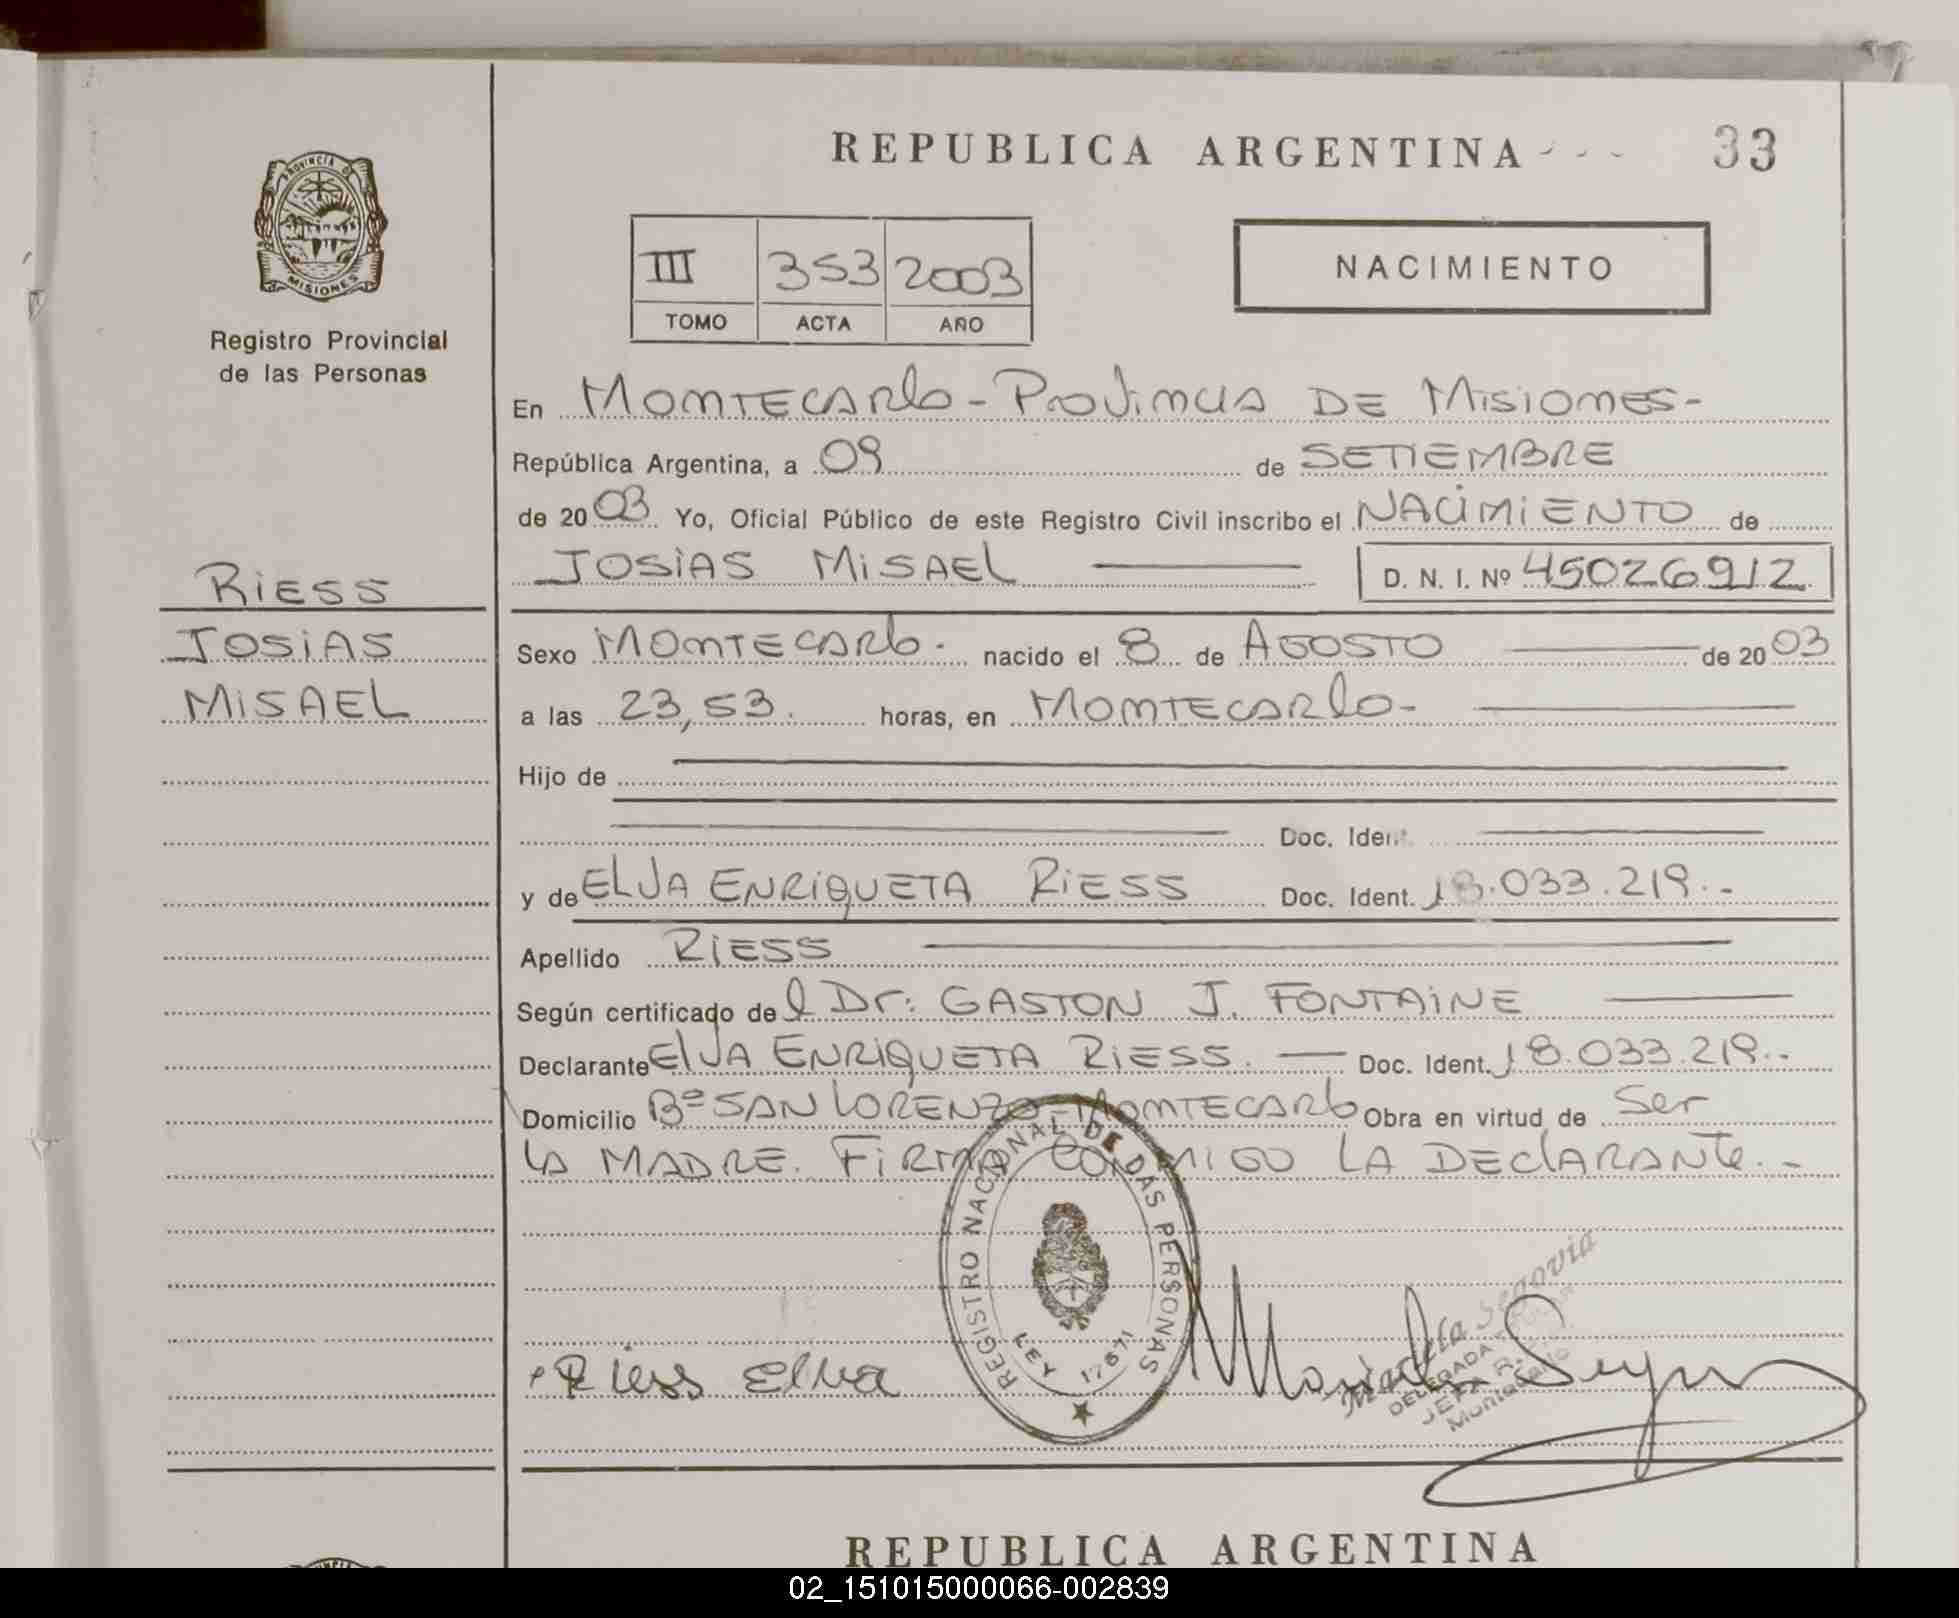 REPUBLICA ARGENTINA - - - 33
PROVINCIA DE MISIONES
Registro Provincial
de las Personas
III 353 2003
TOMO ACTA AÑO
NACIMIENTO
En MONTECARLO - PROVINCIA DE MISIONES -
República Argentina, a 09 de SETIEMBRE
de 2003 Yo, Oficial Público de este Registro Civil inscribo el NACIMIENTO de
JOSIAS MISAEL D. N. I. Nº 45026912
RIESS
JOSIAS
MISAEL
Sexo MONTECARLO. nacido el 8 de AGOSTO de 2003
a las 23,53. horas, en MONTECARLO-
Hijo de
Doc. Ident.
y de ELVA ENRIQUETA RIESS Doc. Ident. 18.033.219.-
Apellido RIESS
Según certificado del Dr: GASTON J. FONTAINE
Declarante ElVA ENRIQUETA RIESS. Doc. Ident. 18.033.219.-
Domicilio Bº SAN LORENZO - MONTECARLO Obra en virtud de Ser
LA MADRE. FIRMA CONMIGO LA DEClARANTe.-
REGISTRO NACIONAL DE LAS PERSONAS
LEY 17671
Riess Elva
Mariela Segovia
DELEGADA TITULAR
JEFA R.
Montecarlo
REPUBLICA ARGENTINA
02_151015000066-002839